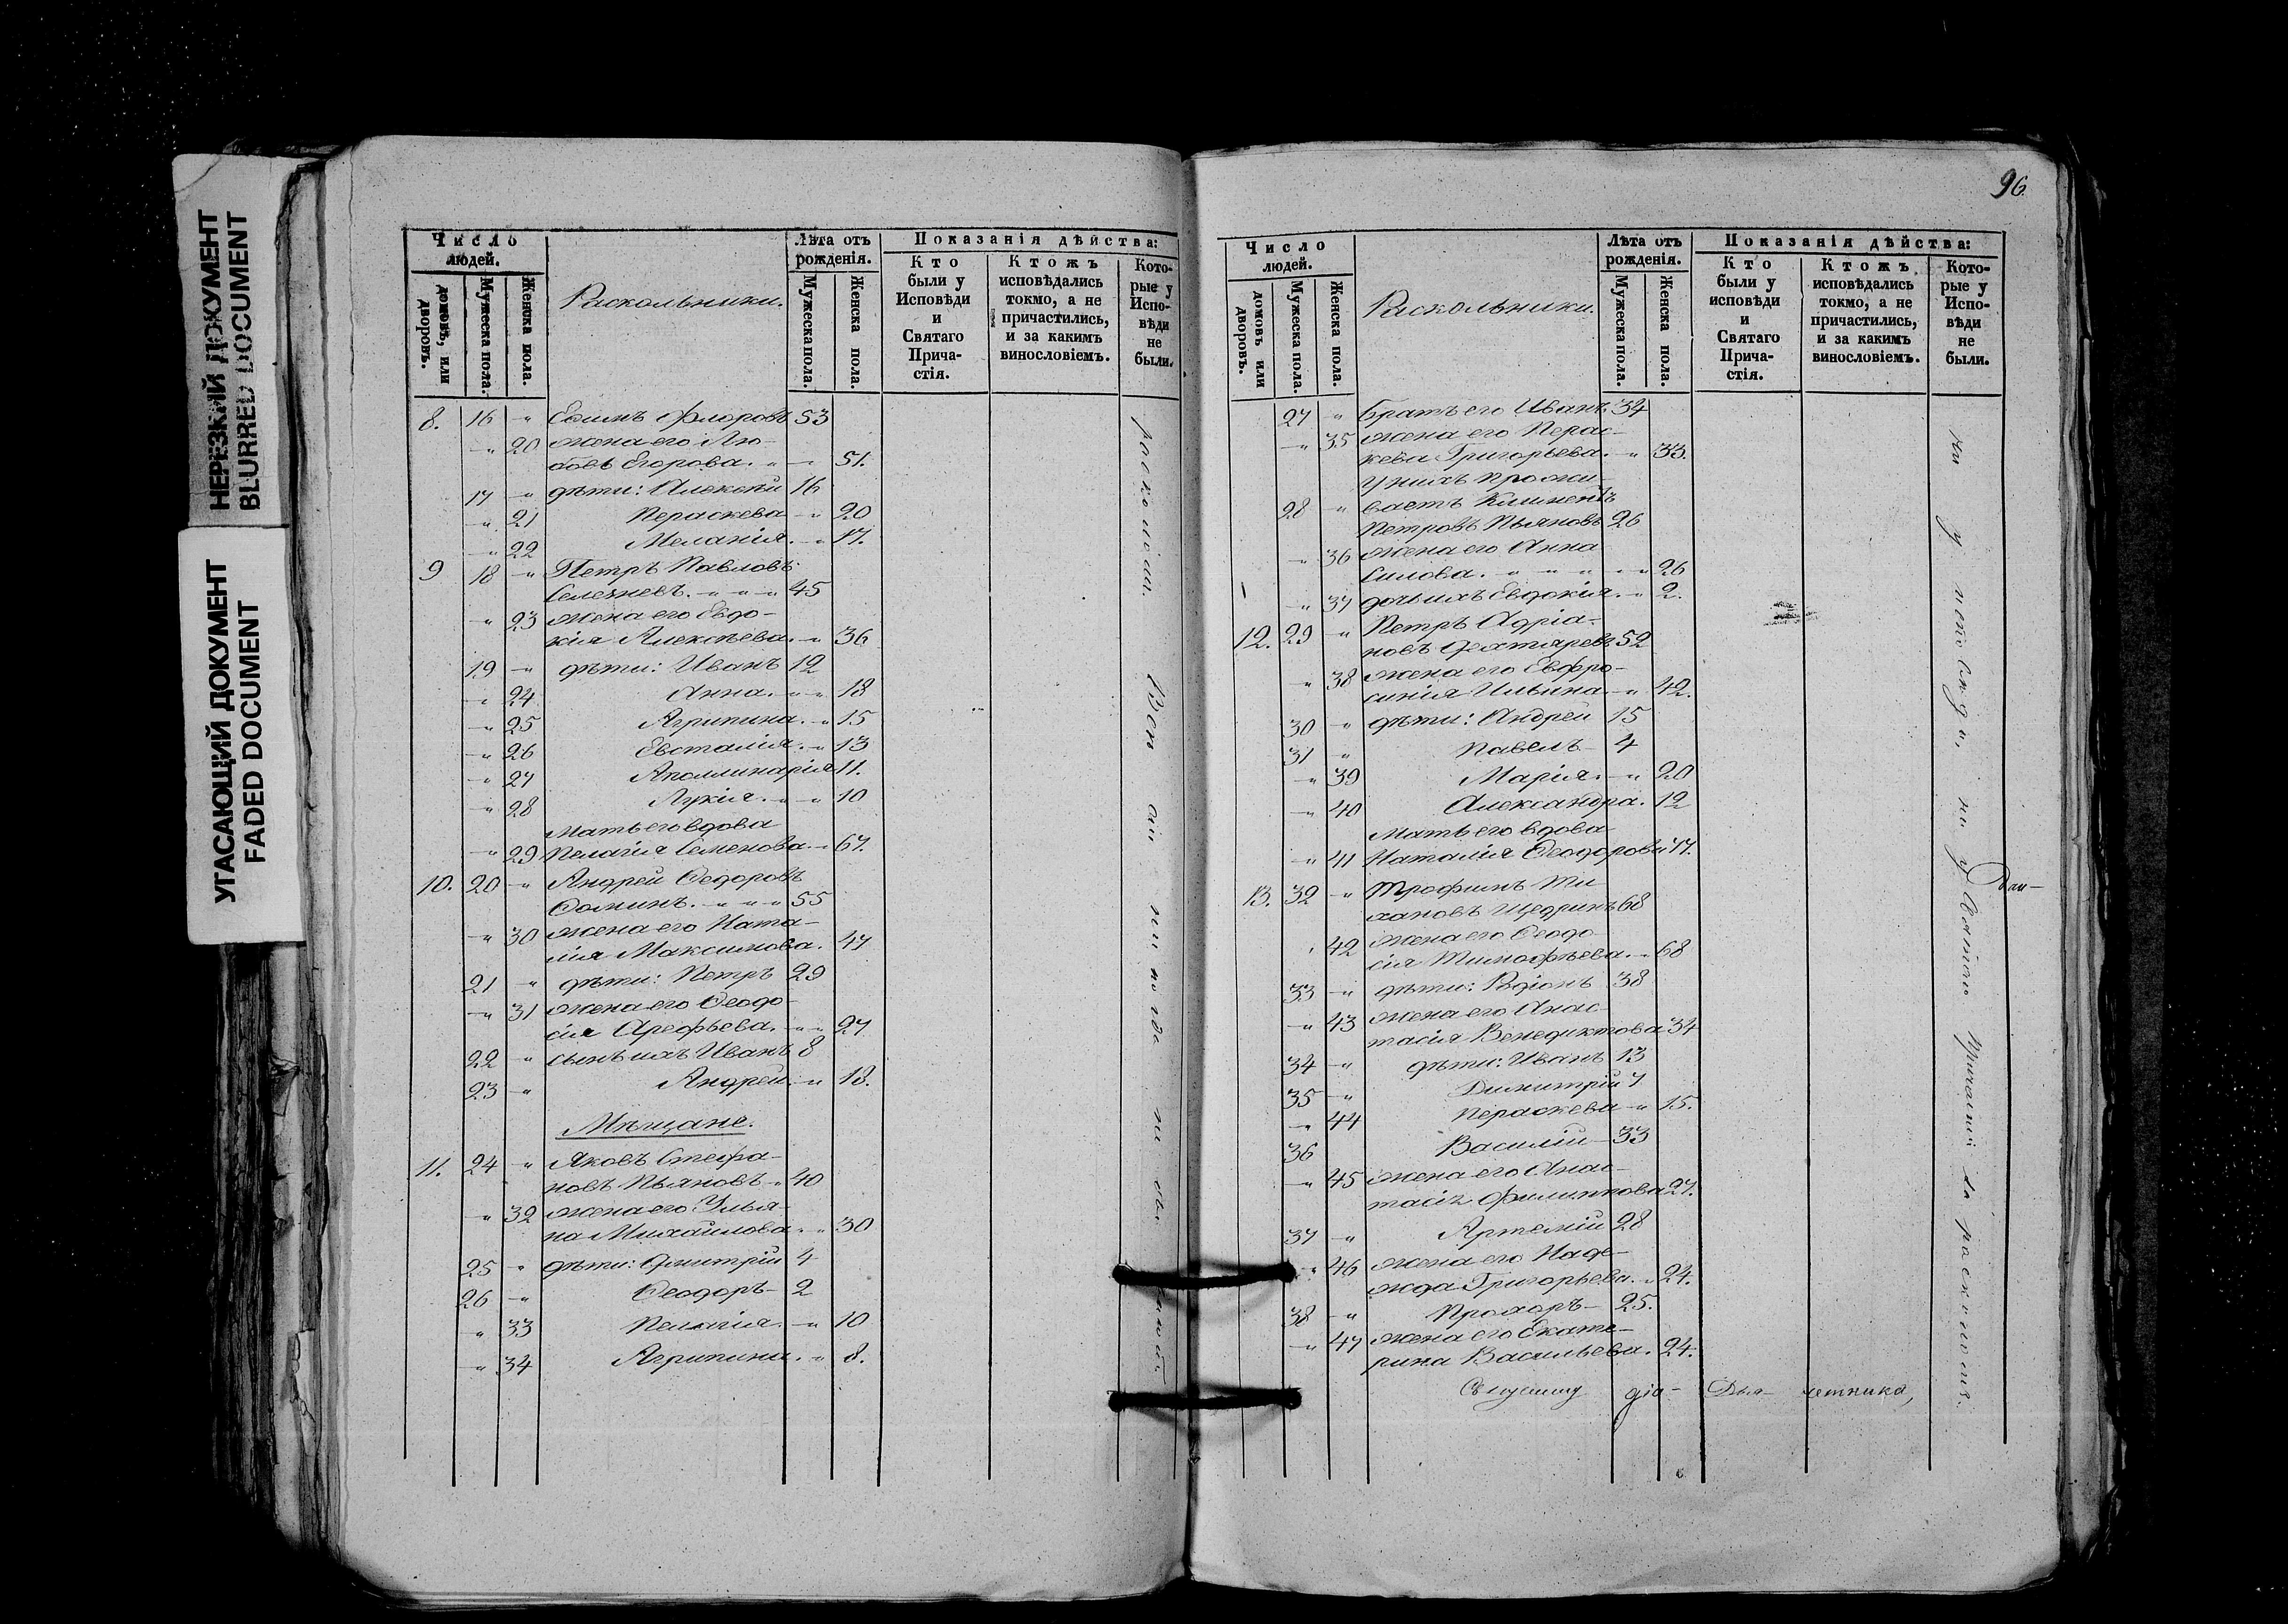 НЕРЕЗКИЙ ДОКУМЕНТ
BLURRED DOCUMENT
УГАСАЮЩИЙ ДОКУМЕНТ
FADED DOCUMENT
Число людей.
домовъ, или дворовъ.
Мужеска пола.
Женска пола.
Раскольники.
Лѣта отъ рожденія.
Мужеска пола.
Женска пола.
Показанія дѣйства:
Кто были у Исповѣди и Святаго Прича-стія.
Ктожъ исповѣдались токмо, а не причастились, и за какимъ винословіемъ.
Кото-рые у Испо-вѣди не были.
8. 16 " Ефимъ Флоровъ 53
" 20 жена его Лю-
бовь Егорова. " — 51.
17 " дѣти: Алексѣй 16
" 21 Пераскева — " 20
" 22 Меланія. — " 17.
9 18 " Петръ Павловъ
Селезневъ. — " — " — " 45
" 23 жена его Евдо-
кія Алексѣева. — " 36
19 " дѣти: Иванъ 12
" 24 Анна. — " — " 18
" 25 Агрипина. — " 15
" 26 Евсталія. — " 13
" 27 Аполлинарія 11.
" 28 Лукія. — " — " 10
Мать его вдова
" 29 Пелагія Семенова. — " 67.
10. 20 " Андрей Ѳедоровъ
Ѳоминъ. — " — " — " 55
" 30 жена его Ната-
лія Максимова. 47
21 " дѣти: Петръ 29
" 31 жена его Ѳеодо-
сія Арефьева. — " — " 27
22 " сынъ ихъ Иванъ 8
23 " Андрей. — " 18.
Мѣщане.
11. 24 " Яковъ Стефа-
новъ Пьяновъ — " 40
" 32 жена его Улья-
на Михайлова. " 30
25 " дѣти: Дмитрій 4
26 " Ѳеодоръ — 2
" 33 Пелагія. — " 10
" 34 Агрипина. — " 8.
расколомъ.
96
Число людей.
домовъ или дворовъ.
Мужеска пола.
Женска пола.
Раскольники.
Лѣта отъ рожденія.
Мужеска пола.
Женска пола.
Показанія дѣйства:
Кто были у исповѣди и Святаго Прича-стія.
Ктожъ исповѣдались токмо, а не причастились, и за какимъ винословіемъ.
Кото-рые у Испо-вѣди не были.
27 " Братъ его Иванъ 34
" 35 жена его Перас-
кева Григорьева. — " 33.
У нихъ прожи-
28 " ваетъ Климентъ
Петровъ Пьяновъ 26
" 36 жена его Анна
Силова. " — " — " — " 26
" 37 дочь ихъ Евдокія. — " 2.
12. 29 " Петръ Адріа-
новъ Дехтяревъ 52
" 38 жена его Евфро-
синія Ильина. — " 42.
30 " дѣти: Андрей 15
31 " Павелъ — 4
" 39 Марія. — " 20
" 40 Александра. 12
Мать его вдова
" 41 Наталія Ѳеодорова 77.
13. 32 " Трофимъ Ти
хановъ Щедринъ 68
" 42 жена его Ѳеодо
сія Тимофѣева. — " 68
33 " дѣти: Родіонъ 38
" 43 жена его Анас-
тасія Венедиктова 34
34 " дѣти: Иванъ 13
35 " Димитрій 7
" 44 Пераскева — " 15.
36 Василій — 33
" 45 жена его Анас-
тасія Филиппова 27.
37 " Артемій 28
" 46 жена его Наде-
жда Григорьева. " 24.
38 " Прохоръ — 25.
" 47 жена его Екате-
рина Васильева. 24.
ни у исповѣди, ни у Святаго Причастія за расколомъ.